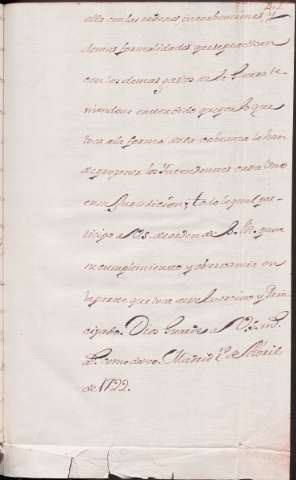 ella con las mismas incorbenciones y
demas formalidades que se practican
con los demas gastos de la Guerra te
niendose entendido que por lo que
toca a la forma de la cobranza la han
de proponer los Intendentes cada uno
en su Jurisdicion; todo lo qual par-
ticipo a V.S. de orden de S. M. para
su cumplimiento y observancia en
la parte que toca a ese y Prin
cipado. Dios Guarde a V.S. m.s
a.s como deseo. Madrid 1.º de Abril
de 1722.